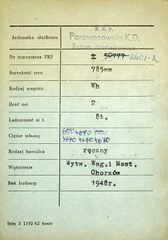 P. K. P.
Jednostka służbowa
Parowozownia K.D.
Nr inwentarza PKP
2401-2
Szerokość toru
785mm
Rodzaj wagonu
Wb
Ilość osi
2
Ładowność w t.
8t.
Ciężar własny
Rodzaj hamulca
ręczny
Wytwórnia
Wytw. Wag. i Most.
Chorzów
Rok budowy
1948r.